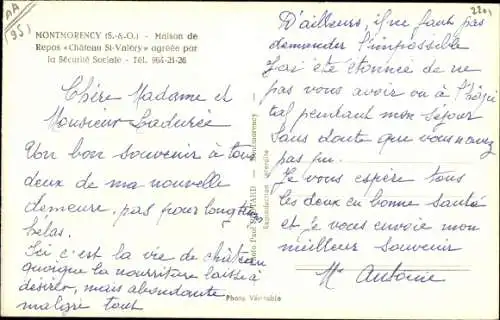 AA
951
2201
MONTMORENCY (S.-&-O.) - Maison de
Repos «Château St-Valéry» agréée par
la Sécurité Sociale - Tél. 964-21-26
Chère Madame et
Monsieur Ladurée
Un bon souvenir à tous
deux de ma nouvelle
demeure, pas pour longtemps
hélas.
Ici c'est la vie de château
quoique la nourriture laisse à
désirer, mais abondante
malgré tout
Photo Véritable
Montmorency
Reproduction interdite
D'ailleurs, il ne faut pas
demander l'impossible
J'ai été étonnée de ne
pas vous avoir vu à l'hôpi
tal pendant mon séjour
sans doute que vous n'avez
pas pu.
Je vous espère tous
les deux en bonne santé
et je vous envoie mon
meilleur souvenir
Me Antoine